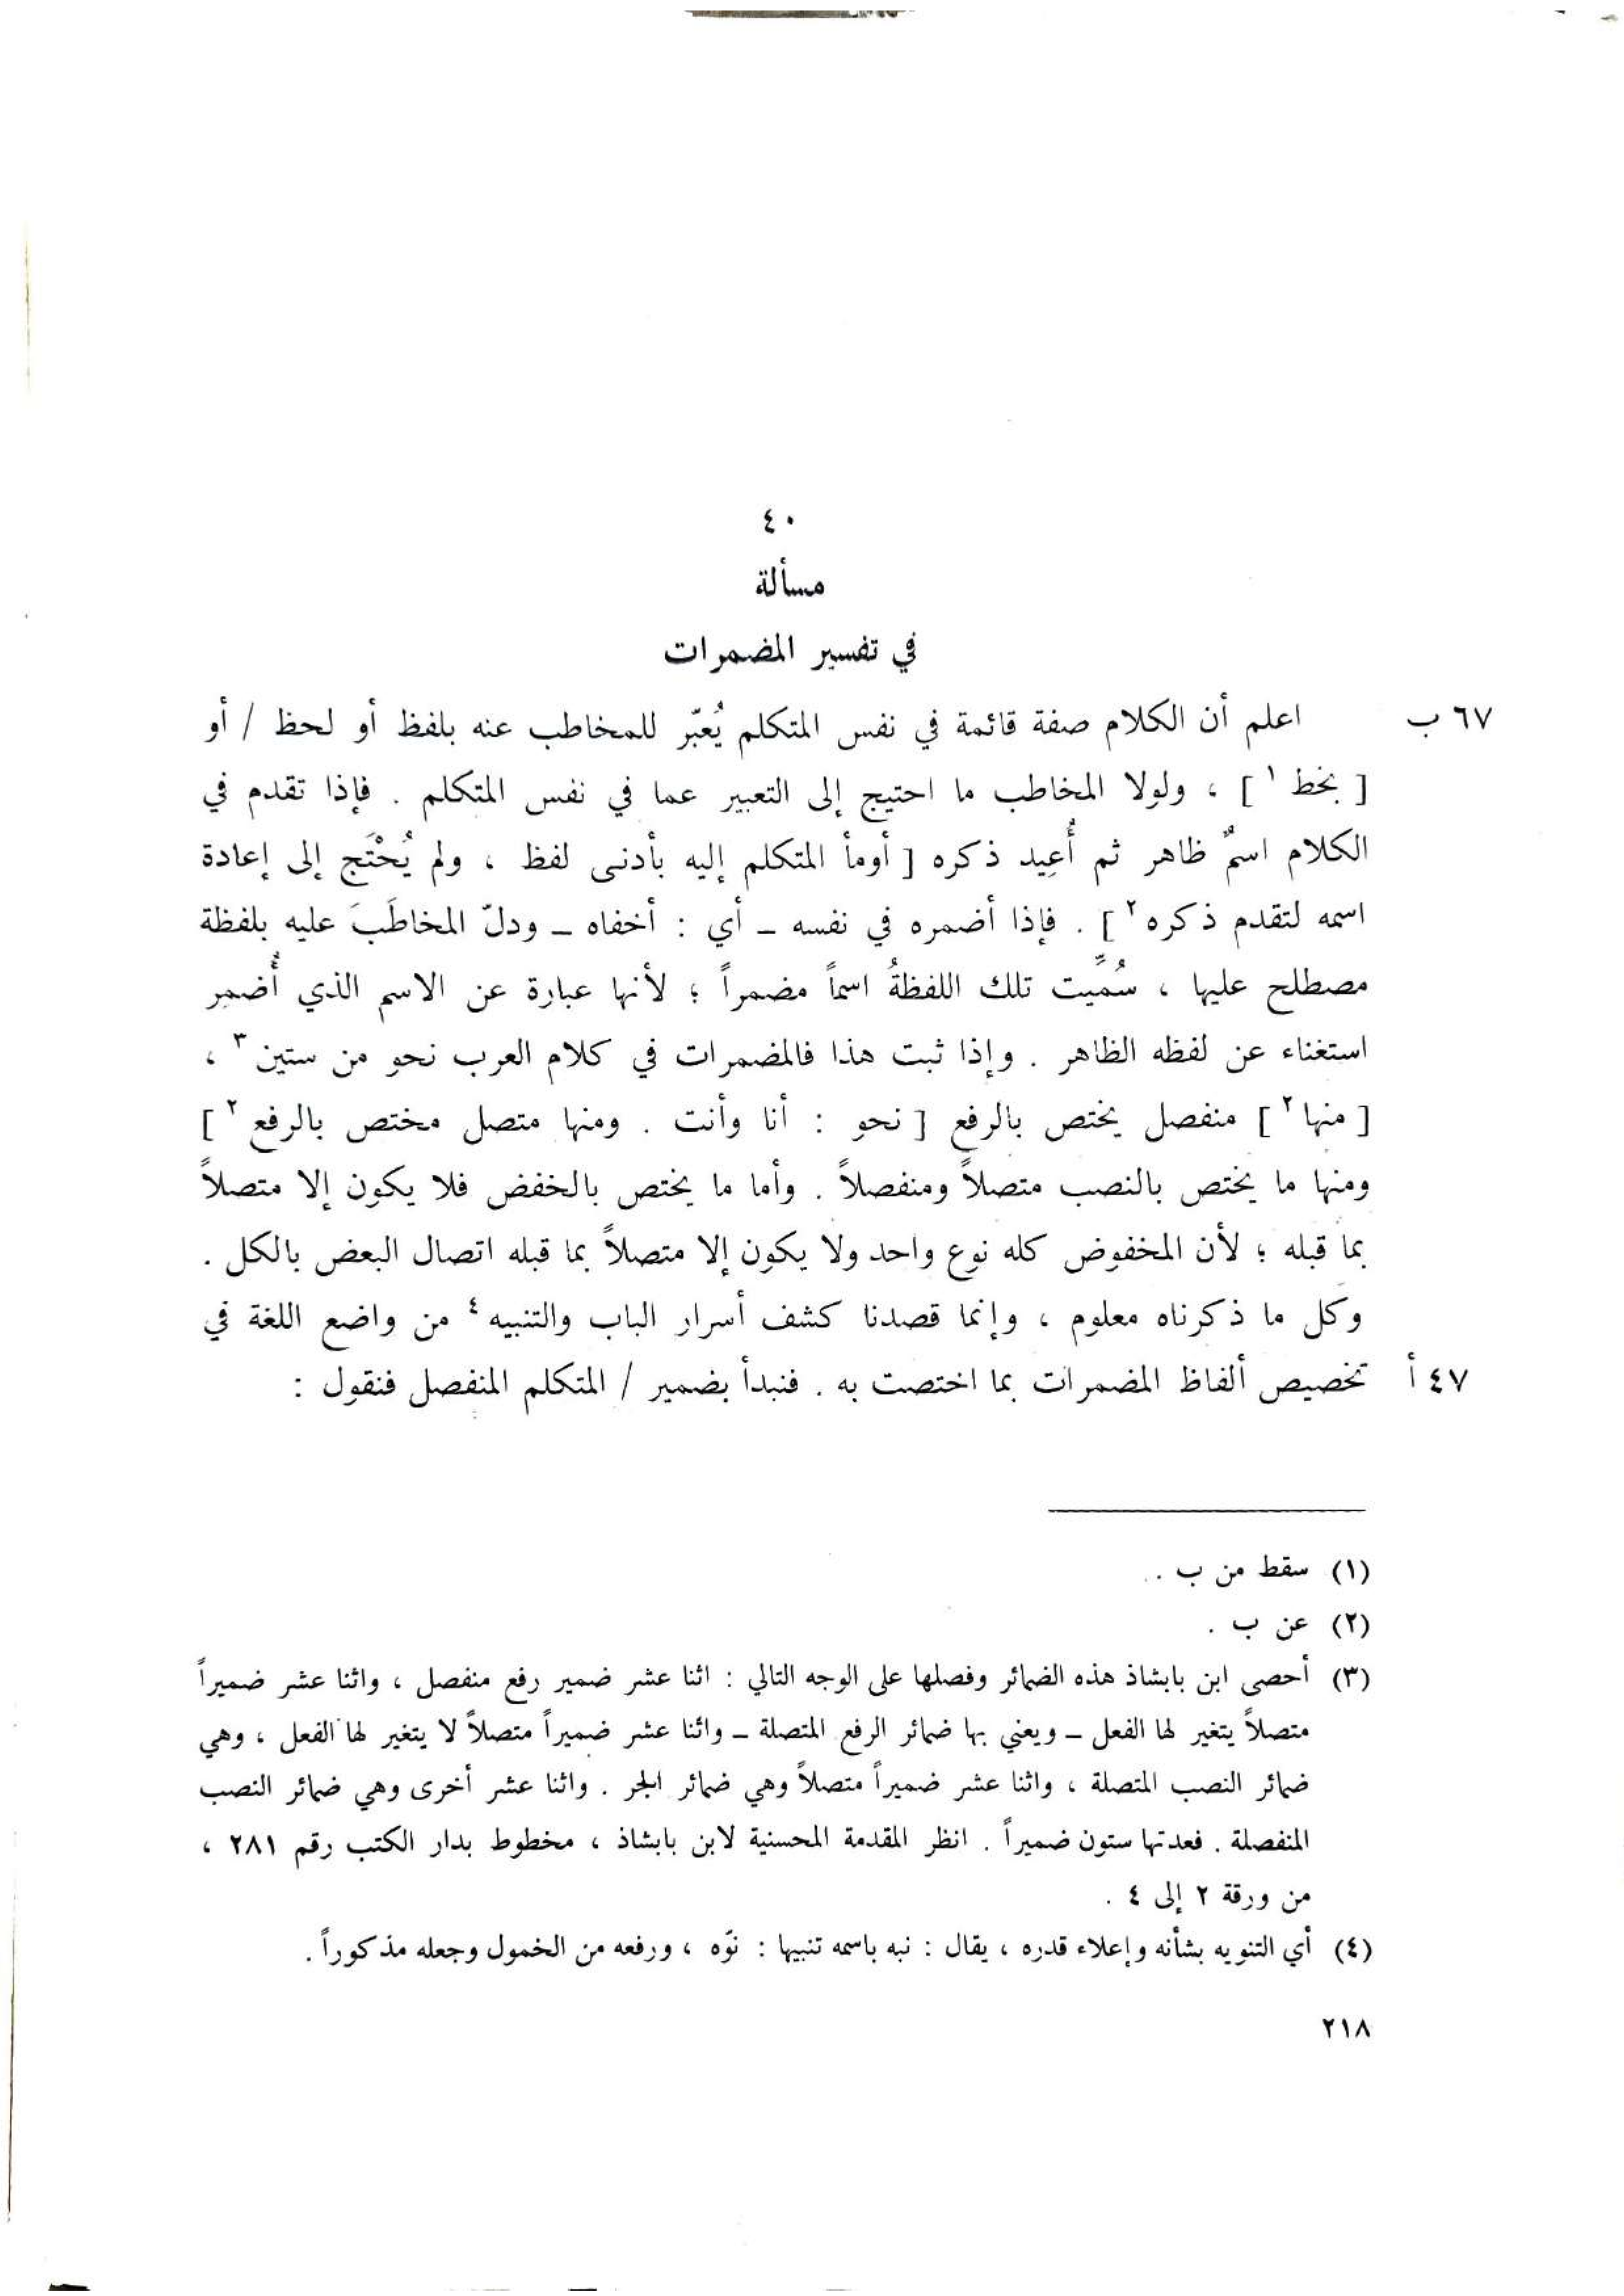 ٤٠
مسألة
في تفسير المضمرات
اعلم أن الكلام صفة قائمة في نفس المتكلم يُعبّر للمخاطب عنه بلفظ أو لحظ / أو ٦٧ ب
[ بخط ١ ] ، ولولا المخاطب ما احتيج إلى التعبير عما في نفس المتكلم . فإذا تقدم في
الكلام اسمٌ ظاهر ثم أُعِيد ذكره [ أومأ المتكلم إليه بأدنى لفظ ، ولم يُحْتَج إلى إعادة
اسمه لتقدم ذكره ٢ ] . فإذا أضمره في نفسه – أي : أخفاه – ودلّ المخاطَبَ عليه بلفظة
مصطلح عليها ، سُمِّيت تلك اللفظةُ اسماً مضمراً ؛ لأنها عبارة عن الاسم الذي أُضمر
استغناء عن لفظه الظاهر . وإذا ثبت هذا فالمضمرات في كلام العرب نحو من ستين ٣ ،
[ منها ٢ ] منفصل يختص بالرفع [ نحو : أنا وأنت . ومنها متصل مختص بالرفع ٢ ]
ومنها ما يختص بالنصب متصلاً ومنفصلاً . وأما ما يختص بالخفض فلا يكون إلا متصلاً
بما قبله ؛ لأن المخفوض كله نوع واحد ولا يكون إلا متصلاً بما قبله اتصال البعض بالكل .
وكل ما ذكرناه معلوم ، وإنما قصدنا كشف أسرار الباب والتنبيه ٤ من واضع اللغة في
تخصيص ألفاظ المضمرات بما اختصت به . فنبدأ بضمير / المتكلم المنفصل فنقول : ٤٧ أ
(١) سقط من ب .
(٢) عن ب .
(٣) أحصى ابن بابشاذ هذه الضمائر وفصلها على الوجه التالي : اثنا عشر ضمير رفع منفصل ، واثنا عشر ضميراً
متصلاً يتغير لها الفعل – ويعني بها ضمائر الرفع المتصلة – واثنا عشر ضميراً متصلاً لا يتغير لها الفعل ، وهي
ضمائر النصب المتصلة ، واثنا عشر ضميراً متصلاً وهي ضمائر الجر . واثنا عشر أخرى وهي ضمائر النصب
المنفصلة . فعدتها ستون ضميراً . انظر المقدمة المحسنية لابن بابشاذ ، مخطوط بدار الكتب رقم ٢٨١ ،
من ورقة ٢ إلى ٤ .
(٤) أي التنويه بشأنه وإعلاء قدره ، يقال : نبه باسمه تنبيها : نوّه ، ورفعه من الخمول وجعله مذكوراً .
٢١٨